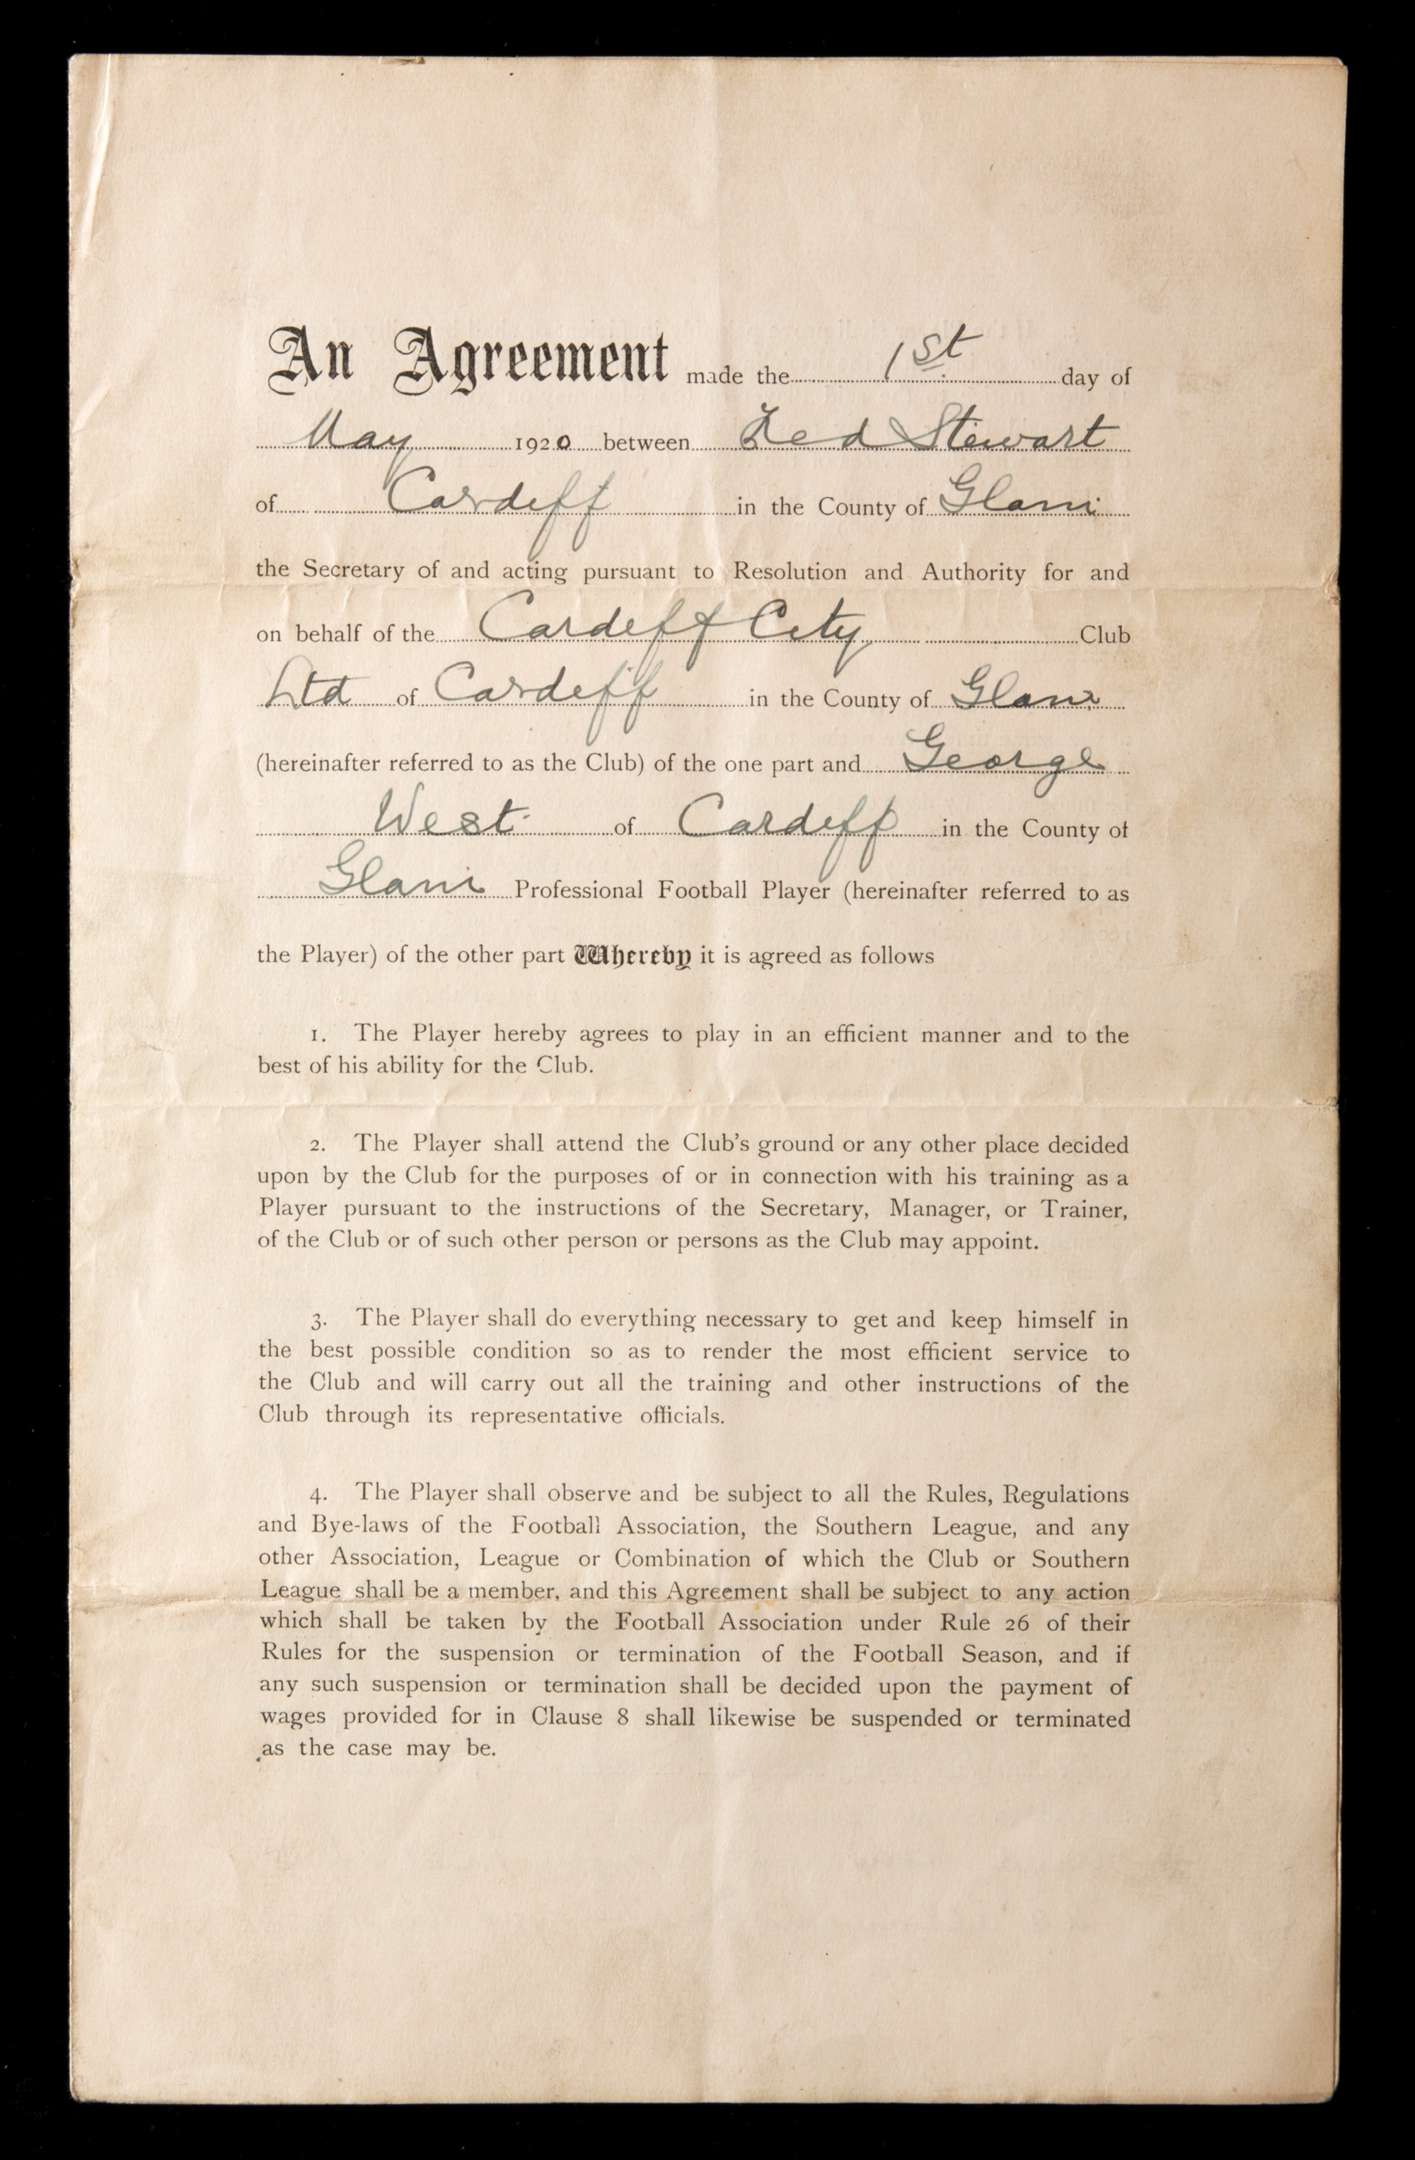 An Agreement made the 1st day of
May 1920 between Fred Stewart
of Cardiff in the County of Glam
the Secretary of and acting pursuant to Resolution and Authority for and
on behalf of the Cardiff City Club
Ltd of Cardiff in the County of Glam
(hereinafter referred to as the Club) of the one part and George
West of Cardiff in the County of
Glam Professional Football Player (hereinafter referred to as
the Player) of the other part Whereby it is agreed as follows
1. The Player hereby agrees to play in an efficient manner and to the
best of his ability for the Club.
2. The Player shall attend the Club's ground or any other place decided
upon by the Club for the purposes of or in connection with his training as a
Player pursuant to the instructions of the Secretary, Manager, or Trainer,
of the Club or of such other person or persons as the Club may appoint.
3. The Player shall do everything necessary to get and keep himself in
the best possible condition so as to render the most efficient service to
the Club and will carry out all the training and other instructions of the
Club through its representative officials.
4. The Player shall observe and be subject to all the Rules, Regulations
and Bye-laws of the Football Association, the Southern League, and any
other Association, League or Combination of which the Club or Southern
League shall be a member, and this Agreement shall be subject to any action
which shall be taken by the Football Association under Rule 26 of their
Rules for the suspension or termination of the Football Season, and if
any such suspension or termination shall be decided upon the payment of
wages provided for in Clause 8 shall likewise be suspended or terminated
as the case may be.